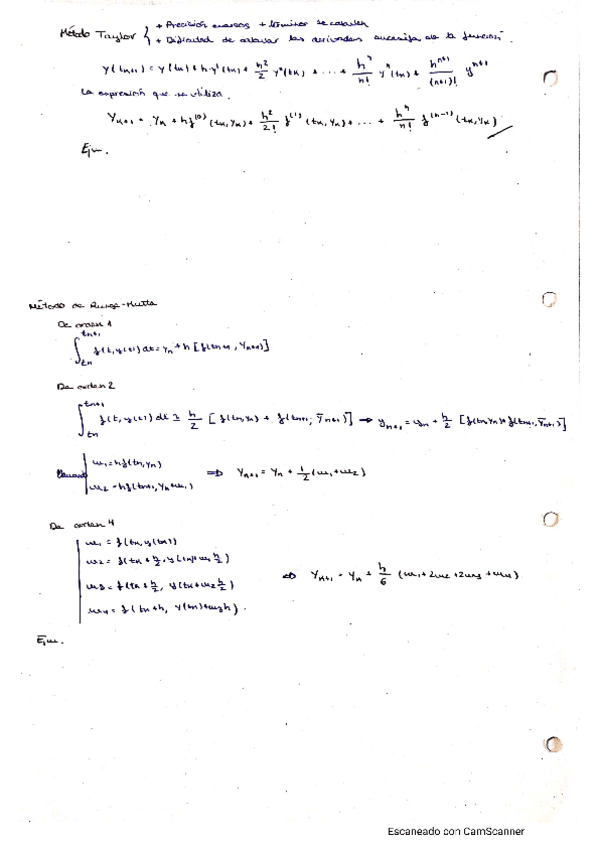 Método Taylor { + Precisión cuantos + términos se calculen
+ Dificultad de calcular las derivadas sucesivas de la función.
y(tn+1) = y(tn) + h·y'(tn) + h²/2 y''(tn) + ... + hⁿ/n! yⁿ(tn) + hⁿ⁺¹/(n+1)! yⁿ⁺¹
La expresión que se utiliza.
Yn+1 = Yn + h f⁽⁰⁾(tn, Yn) + h²/2! f⁽¹⁾(tn, Yn) + ... + hⁿ/n! f⁽ⁿ⁻¹⁾(tn, Yn)
Ejm.
Método de Runge-Kutta
De orden 1
∫tn^tn+1 f(t, y(t)) dt = Yn + h [f(tn+1, Yn+1)]
De orden 2
∫tn^tn+1 f(t, y(t)) dt ≃ h/2 [f(tn, yn) + f(tn+1, ȳn+1)] → yn+1 = yn + h/2 [f(tn, yn) + f(tn+1, ȳn+1)]
w1 = h f(tn, Yn)
w2 = h f(tn+1, Yn + w1) ⇒ Yn+1 = Yn + 1/2 (w1 + w2)
De orden 4
w1 = f(tn, y(tn))
w2 = f(tn + h/2, y(tn) + w1 h/2)
w3 = f(tn + h/2, y(tn + w2 h/2) ⇒ Yn+1 = Yn + h/6 (w1 + 2w2 + 2w3 + w4)
w4 = f(tn + h, y(tn) + w3 h).
Ejm.
Escaneado con CamScanner